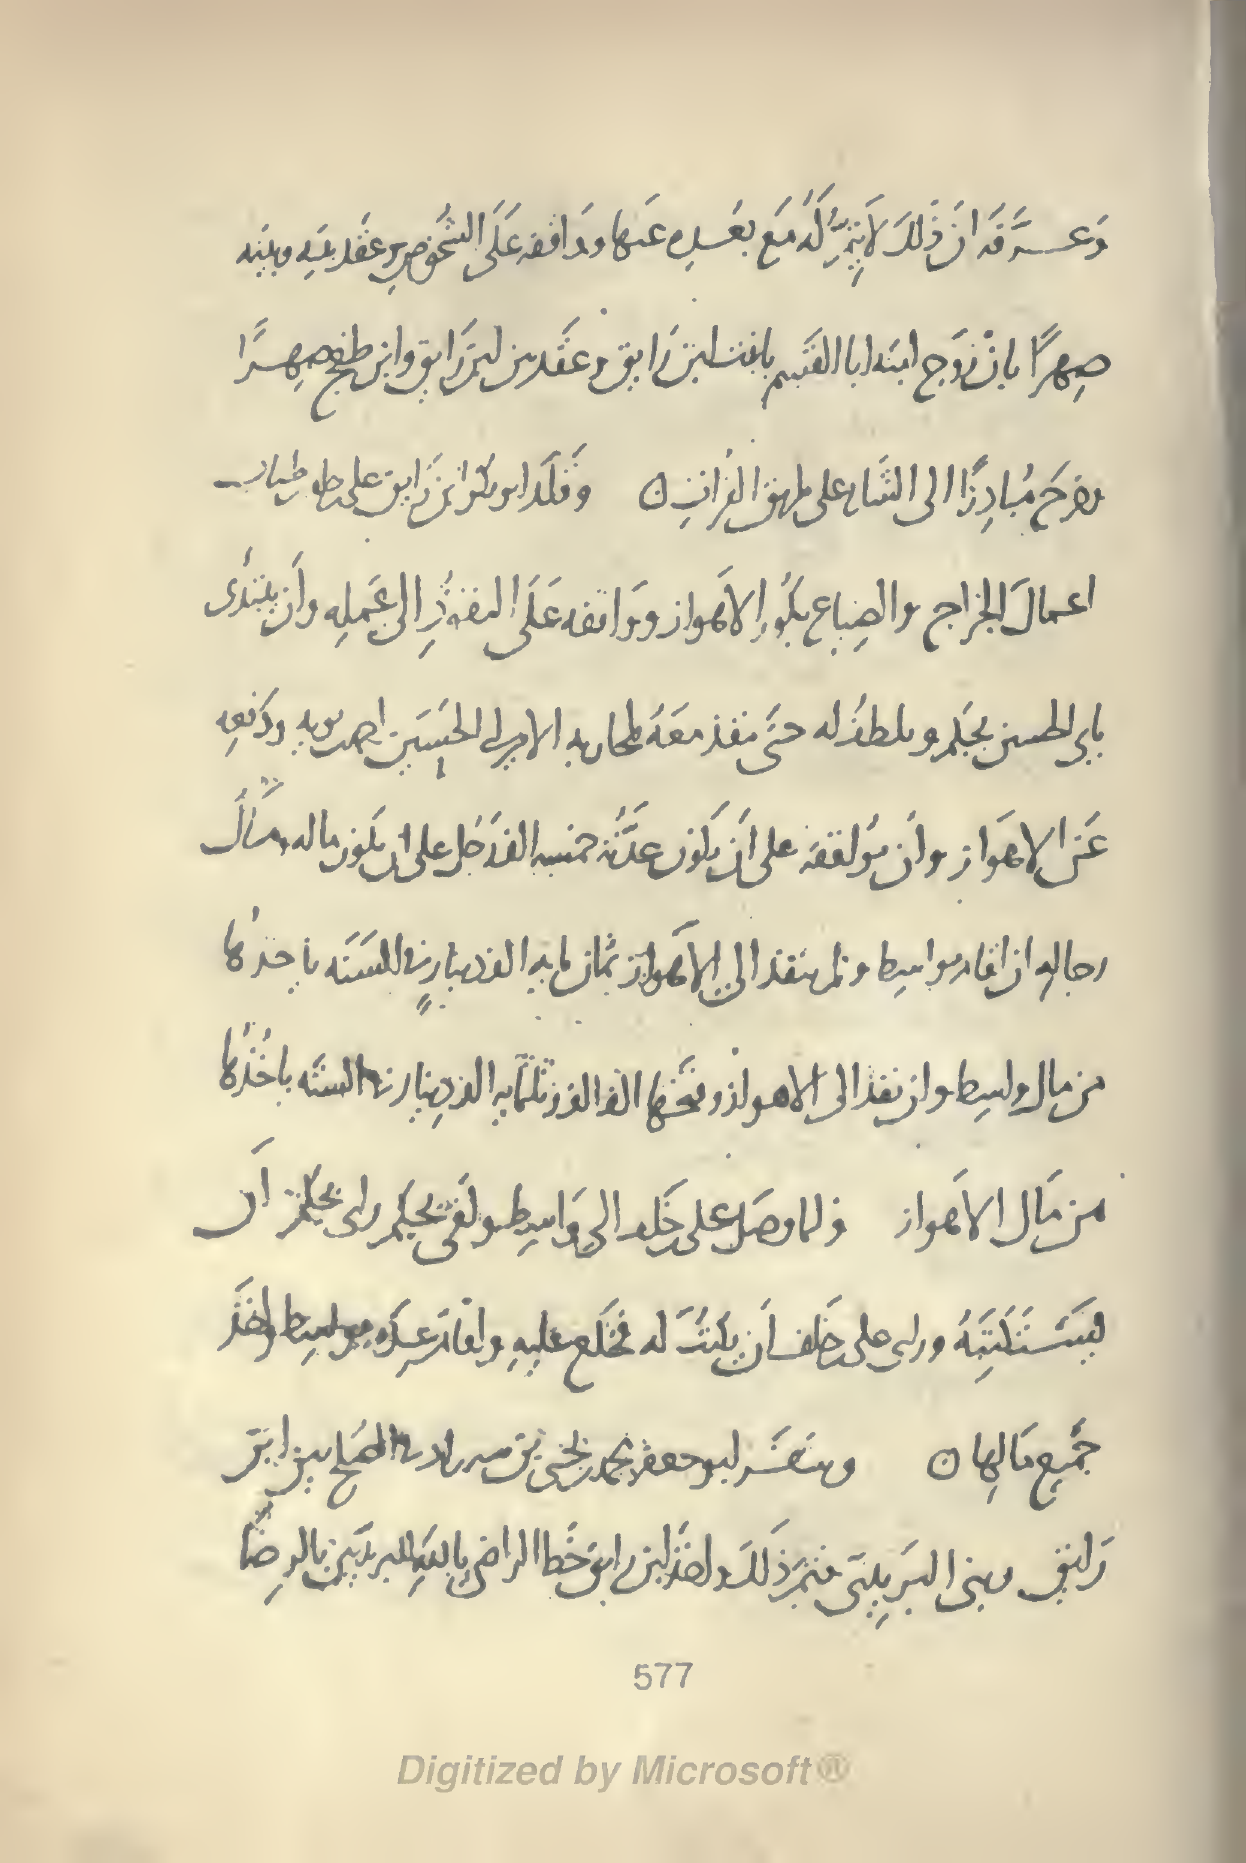 وعرّفه ان ذلك لا يتمّ له مع بعده عنها ووافقه على الشخوص وعقد بينه وبينه
صهرًا بان زوّج ابنه ابا القسم بابنت ابن رايق وعقد بين ابن رايق وابن طغج صهرًا
وخرج مبادرًا الى الشام على طريق الفرات ن وقلّد ابو بكر ابن رايق على بن خلف بن طياب
اعمال الخراج والضياع بكور الاهواز ووافقه على النفوذ الى عمله وان يبتدى
بابى الحسين بجكم ويلطف له حتى ينفذ معه لمحاربه الامير ابى الحسين احمد بن بويه ودفعه
عن الاهواز وان يوافقه على ان يكون عدّته خمسه الف رجل على ان يكون ماله ومال
رجاله ان اقام بواسط ولم ينفذ الى الاهواز ثمان مايه الف دينار فى السنه ياخذها
من مال واسط وان نفذ الى الاهواز وفتحها الف الف وثلثمايه الف دينار فى السنه ياخذها
من مال الاهواز ولما وصل على بن خلف الى واسط ولقى بجكم راى بجكم ان
يستكتبه وراى على بن خلف ان يكتب له فخلع عليه واقام عنده بواسط واخذ
جميع مالها ن وسفر ابو جعفر محمد بن يحيى بن شيرزاد فى الصلح بين ابن
رايق وبين البريديّين فتمّ ذلك واخذ ابن رايق خطّ الراضى بالله للبريديّين بالرضا
577
Digitized by Microsoft®